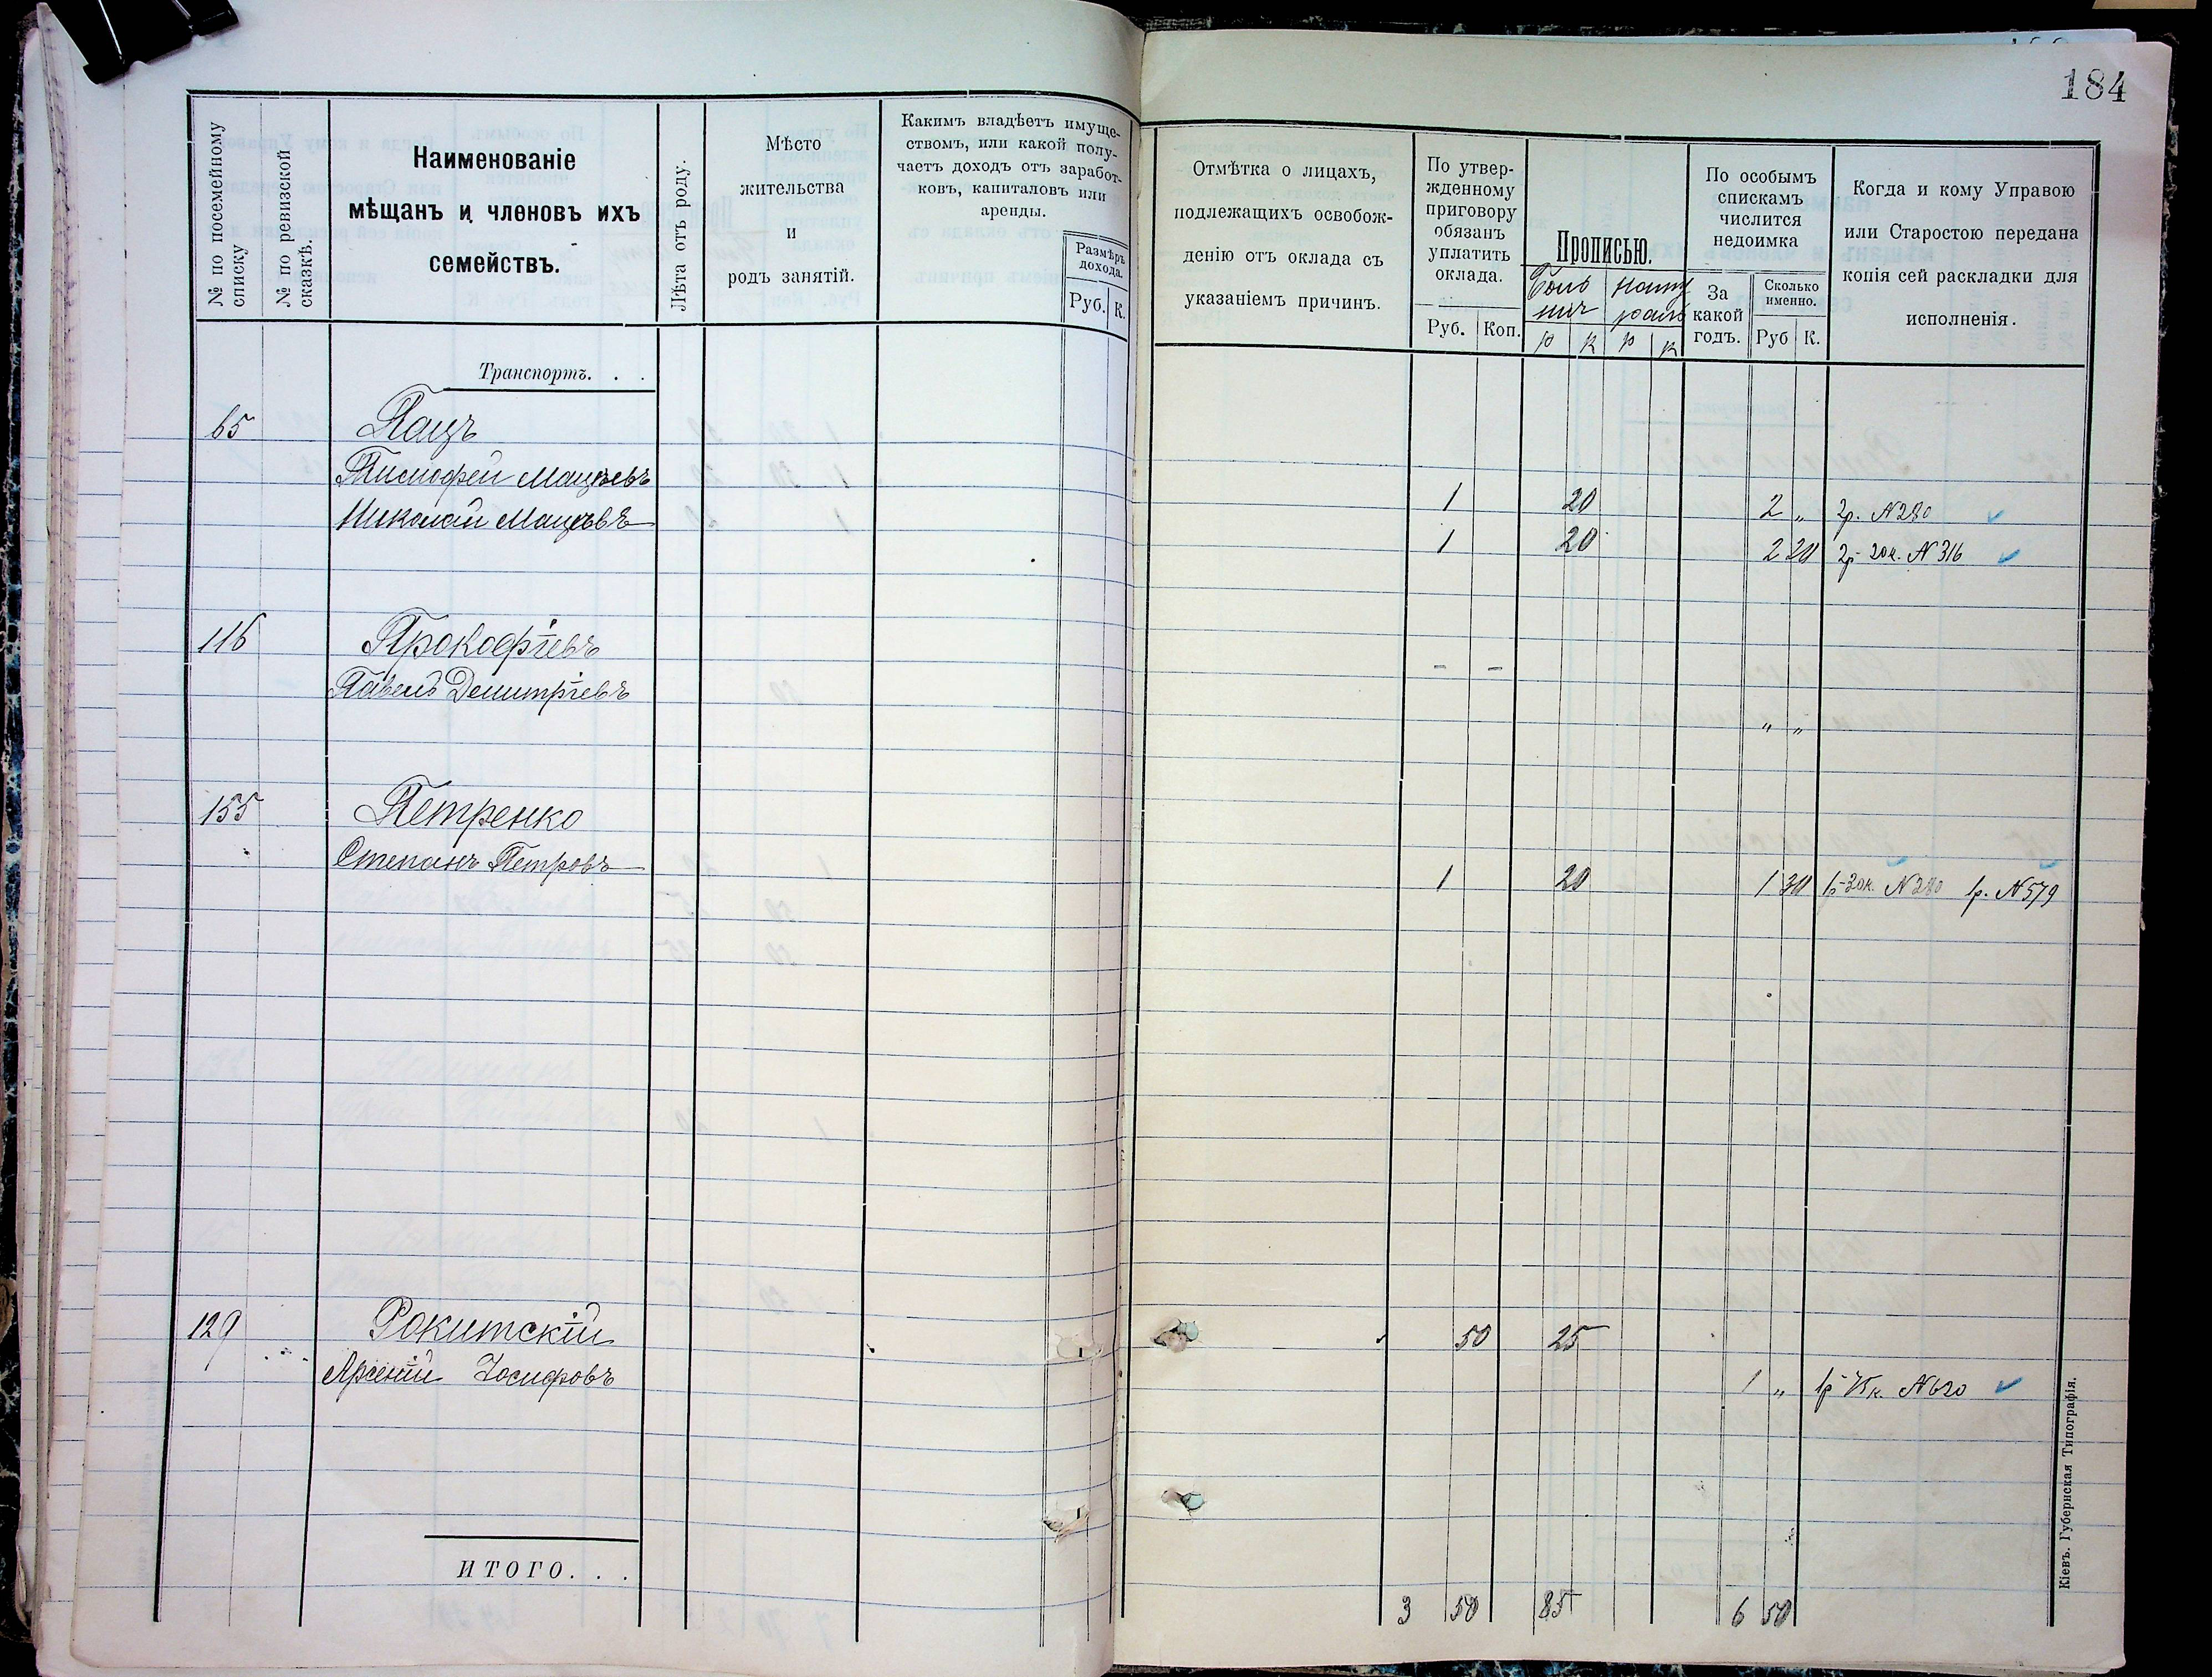 184
№ по посемейному списку
№ по ревизской сказкѣ.
Наименованіе
мѣщанъ и членовъ ихъ
семействъ.
Лѣта отъ роду.
Мѣсто
жительства
и
родъ занятій.
Какимъ владѣетъ имуще-
ствомъ, или какой полу-
чаетъ доходъ отъ заработ-
ковъ, капиталовъ или
аренды.
Размѣръ
дохода.
Руб. К.
Отмѣтка о лицахъ,
подлежащихъ освобож-
денію отъ оклада съ
указаніемъ причинъ.
По утвер-
жденному
приговору
обязанъ
уплатить
оклада.
Руб. Коп.
Прописью.
р к р к
По особымъ
спискамъ
числится
недоимка
За
какой
годъ.
Сколько
именно.
Руб К.
Когда и кому Управою
или Старостою передана
копія сей раскладки для
исполненія.
Транспортъ. . .
65 Пацъ
Тимофей Мацѣевъ 1 20 2 „ 2р. N280
Николай Мацѣевъ 1 20 2 20 2р 20к. N316
116 Прокофіевъ - -
Павелъ Димитріевъ „ „
155 Петренко
Степанъ Петровъ 1 20 1 30 1р 30к. N280 1р. N579
129 Рокитскій 50 25
Арсеній Іосифовъ 1 „ 1р 75к. N620
ИТОГО. . .
3 50 85 6 50
Кіевъ. Губернская Типографія.